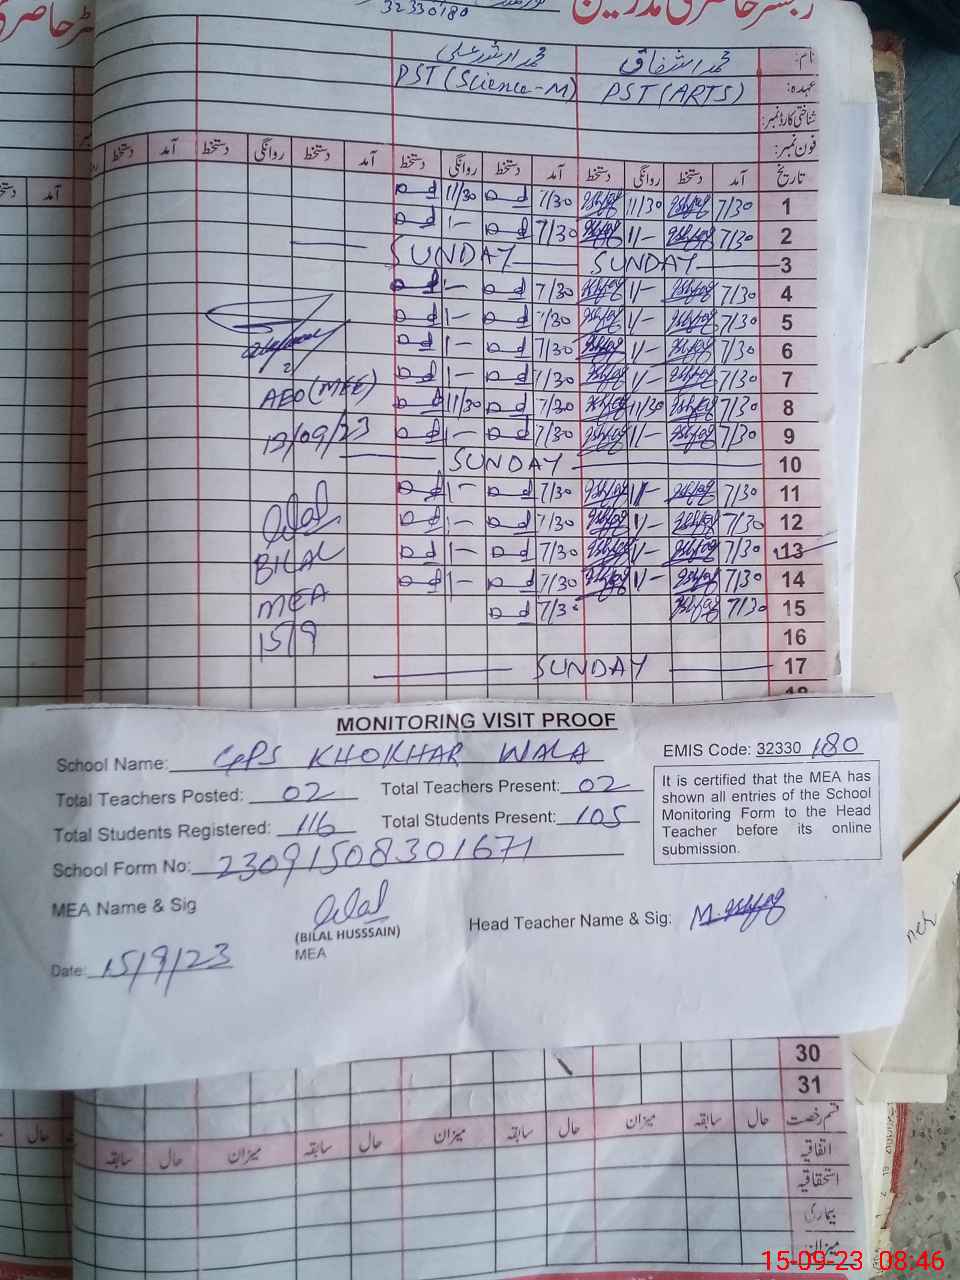 رجسٹر حاضری مدرسین
32330180
نام: محمد اشفاق محمد ارشد علی
عہدہ: PST (ARTS) PST (Science-M)
شناختی کارڈ نمبر:
فون نمبر:
تاریخ آمد دستخط روانگی دستخط آمد دستخط روانگی دستخط آمد دستخط روانگی دستخط آمد دستخط
1 7/30 11/30 7/30 11/30
2 7/30 1/- 7/30 1-
3 SUNDAY SUNDAY
4 7/30 1/- 7/30 1-
5 7/30 1/- 7/30 1-
6 7/30 1/- 7/30 1-
7 7/30 1/- 7/30 1-
8 7/30 11/30 7/30 11/30
9 7/30 1/- 7/30 1-
10 SUNDAY
11 7/30 1/- 7/30 1-
12 7/30 1/- 7/30 1-
13 7/30 1/- 7/30 1-
14 7/30 1/- 7/30 1-
15 7/30 7/30
16
17 SUNDAY
AEO (MEE)
12/09/23
Bilal
BILAL
MEA
15/9
MONITORING VISIT PROOF
School Name: GPS KHOKHAR WALA EMIS Code: 32330 180
Total Teachers Posted: 02 Total Teachers Present: 02
Total Students Registered: 116 Total Students Present: 105
School Form No: 23091508301671
It is certified that the MEA has
shown all entries of the School
Monitoring Form to the Head
Teacher before its online
submission.
MEA Name & Sig Bilal
(BILAL HUSSSAIN)
MEA
Head Teacher Name & Sig: M. Ishfaq
Date: 15/9/23
30
31
قسم رخصت حال سابقہ میزان حال سابقہ میزان حال سابقہ میزان حال سابقہ
اتفاقیہ
استحقاقیہ
بیماری
میزان
15-09-23 08:46